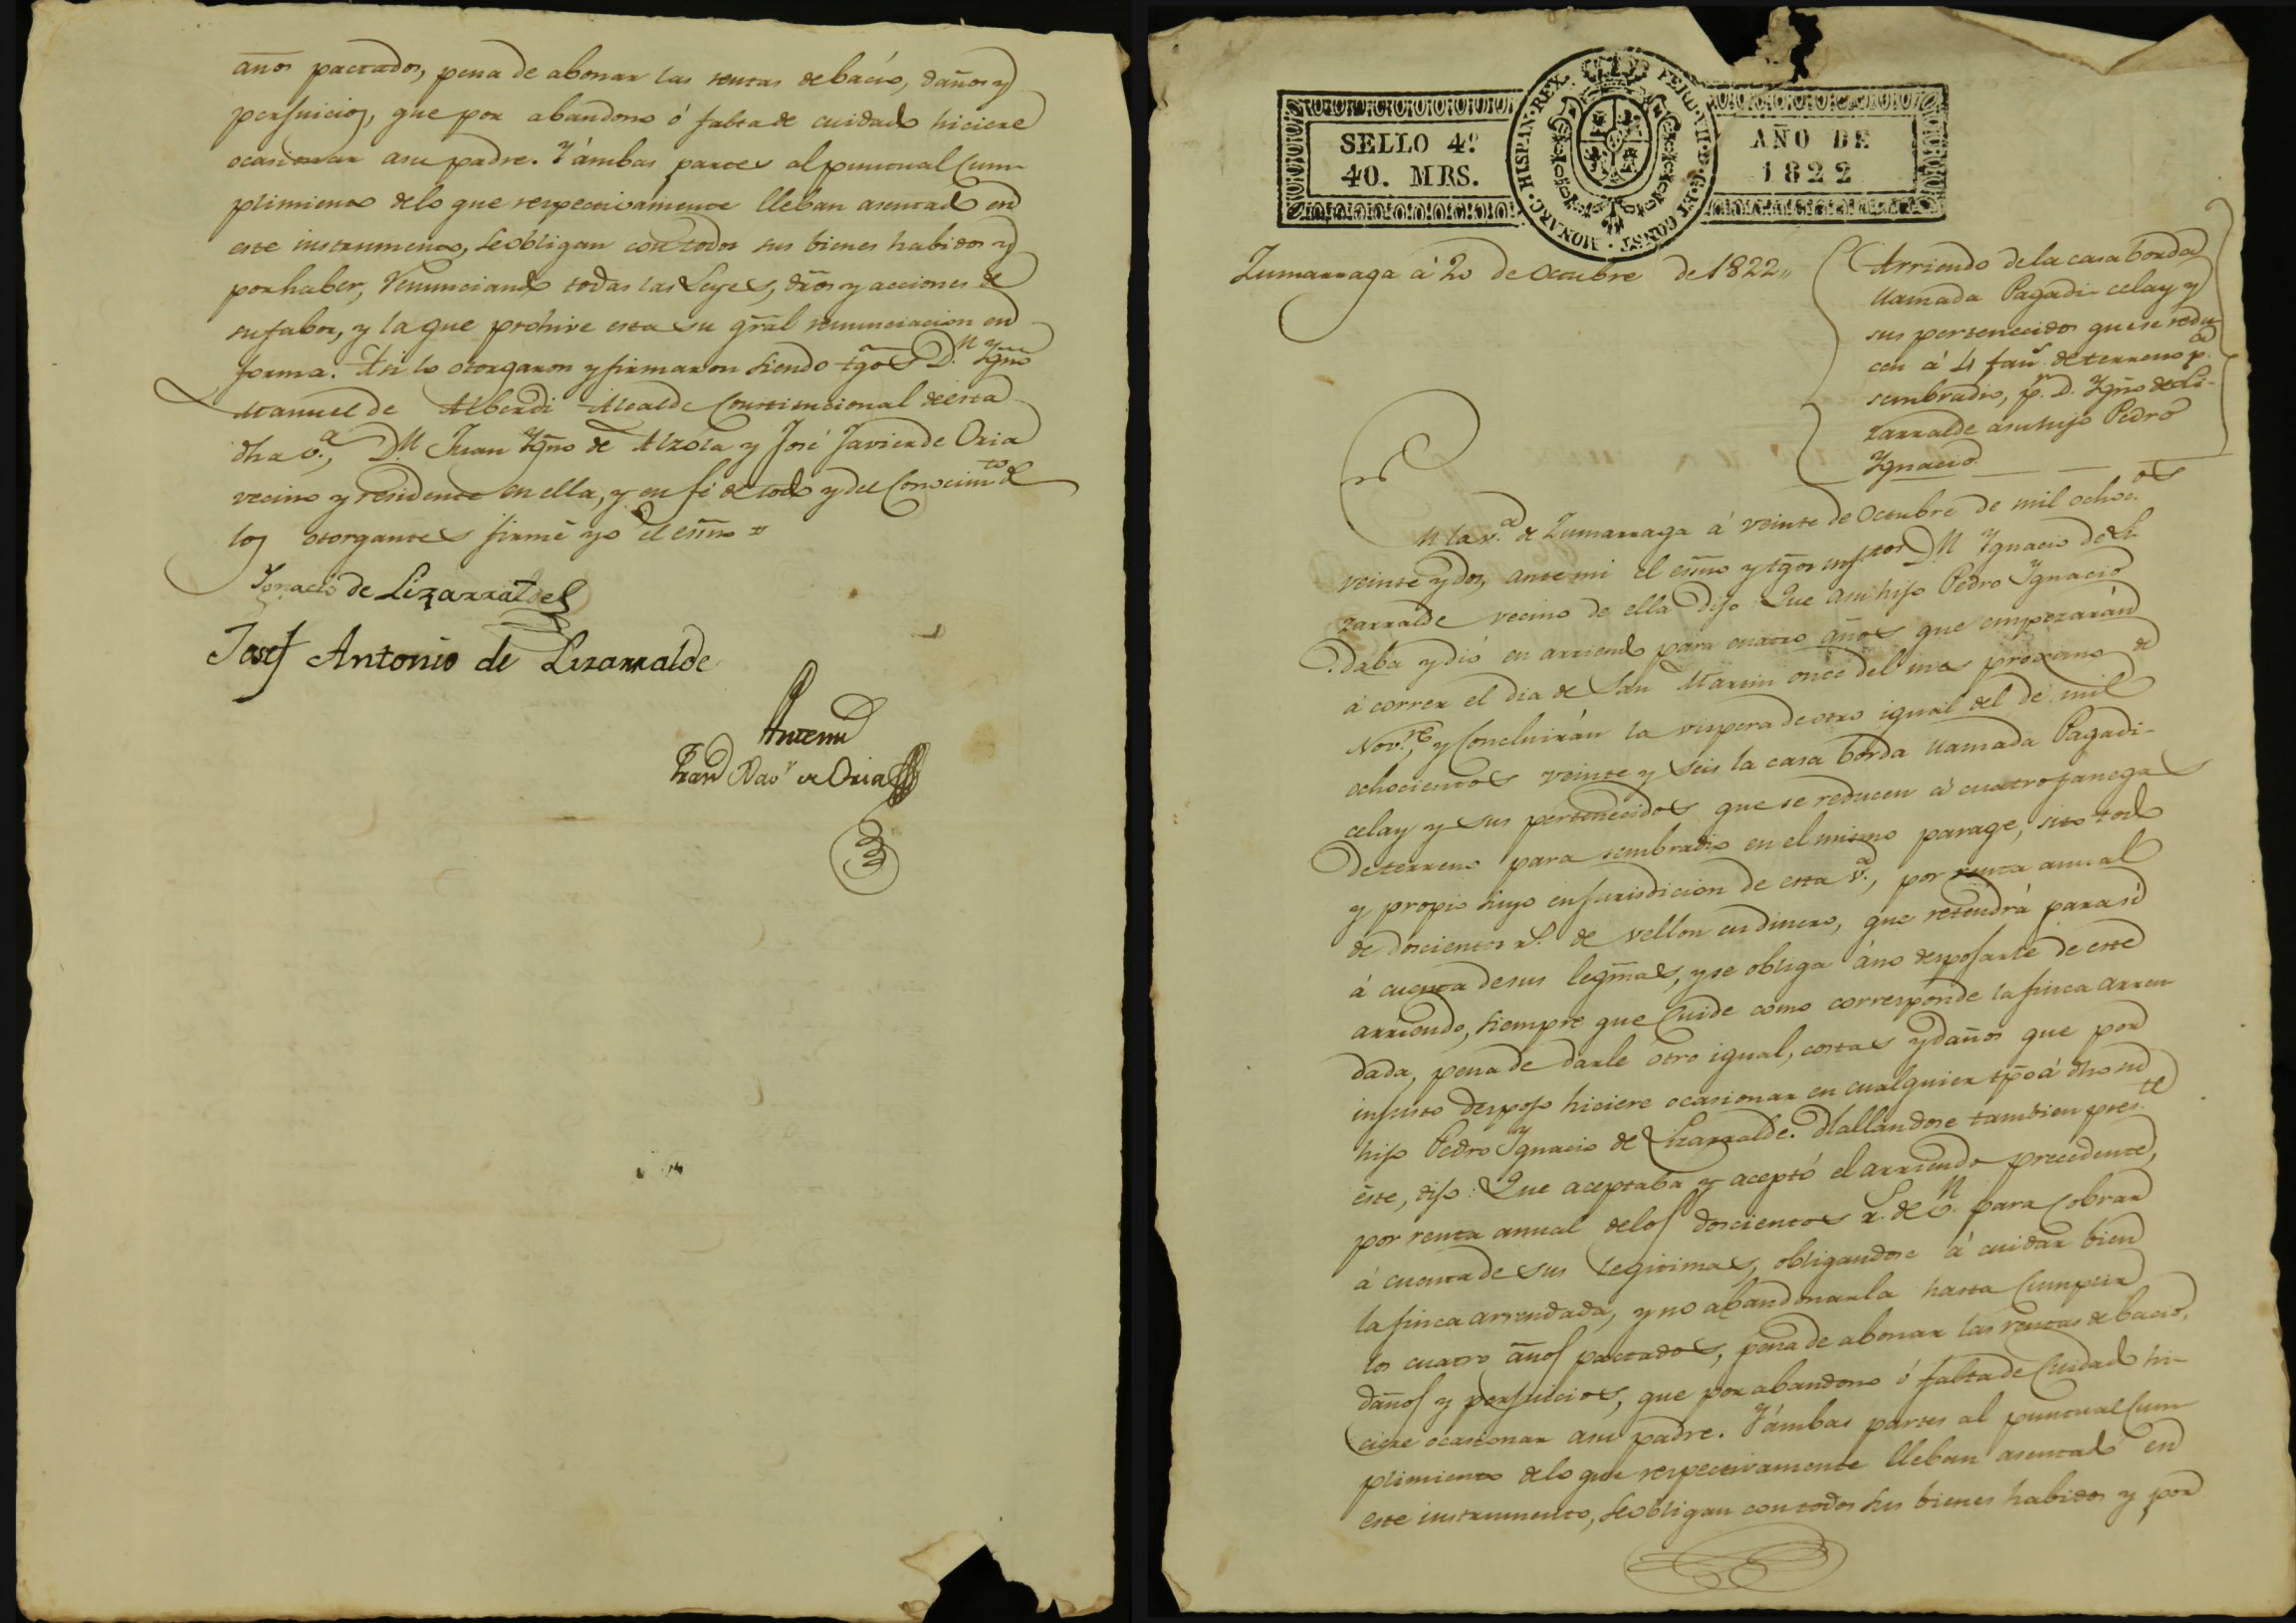 años pactados, pena de abonar las rentas de bacio, daños y
perjuicios, que por abandono ó falta de cuidado hiciere
ocasionar asu padre. Y ámbas partes al puntual cum-
plimiento delo que respectivamente lleban asentado en
este instrumento, se obligan con todos sus bienes habidos y
por haber, renunciando todas las Leyes, dros y acciones de
su fabor, y la que prohive esta su gral renunciacion en
forma. Asi lo otorgaron y firmaron siendo tgos Dn. Ygno
Manuel de Alberdi Alcalde Constitucional de esta
dha v.a, Dn Juan Ygno de Alzola y José Javier de Oria
vecino y residente en ella, y en fé de todo y del Conocimto de
los otorgantes firmé yo el essno =
Ygnacio de Lizarralde
Josef Antonio de Lizarralde
Antemi
Franco Xavr de Oria
SELLO 4º
40. MRS.
HISPAN. REX. FERD. VII. D. G. ET CONST. MONARC.
AÑO DE
1822
Zumarraga á 20 de Octubre de 1822,,
Arriendo de la casa borda
llamada Pagadi-celay y
sus pertenecidos que se redu-
cen á 4 fans. de terreno pa.
sembradio, pr. D. Ygno de Li-
zarralde asu hijo Pedro
Ygnacio.
En la v.a de Zumarraga á veinte de Octubre de mil ochoc.os
veinte y dos, ante mi el essno y tgos infrtos Dn Ygnacio de Li-
zarralde vecino de ella dijo: Que asu hijo Pedro Ygnacio
daba y dió en arriendo para cuatro años que empezarán
á correr el dia de San Martin once del mes proximo de
Nov.re, y Concluirán la vispera de otro igual del de mil
ochocientos veinte y seis la casa borda llamada Pagadi-
celay y sus pertenecidos que se reducen á cuatro fanegas
de terreno para sembradio en el mismo parage, sito todo
y propio suyo en jurisdicion de esta v.a, por renta anual
de doscientos rs. de vellon en dinero, que retendrá para sí
á cuenta de sus legmas, y se obliga áno despojarle de este
arriendo, siempre que Cuide como corresponde la finca arren
dada, pena de darle otro igual, costas y daños que por
injusto despojo hiciere ocasionar en cualquier tpo á dho su
hijo Pedro Ygnacio de Lizarralde. Hallandose tambien pres.te
éste, dijo: Que aceptaba y aceptó el arriendo precedente,
por renta anual delos doscientos rs. de vn. para Cobrar
á cuenta de sus Legitimas, obligandose á cuidar bien
la finca arrendada, y no abandonarla hasta Cumplir
los cuatro años pactados, pena de abonar las rentas de bacio,
daños y perjuicios, que por abandono ó falta de Cuidado hi-
ciere ocasionar asu padre. Y ámbas partes al puntual Cum-
plimiento delo que respectivamente lleban asentado en
este instrumento, se obligan con todos sus bienes habidos y por